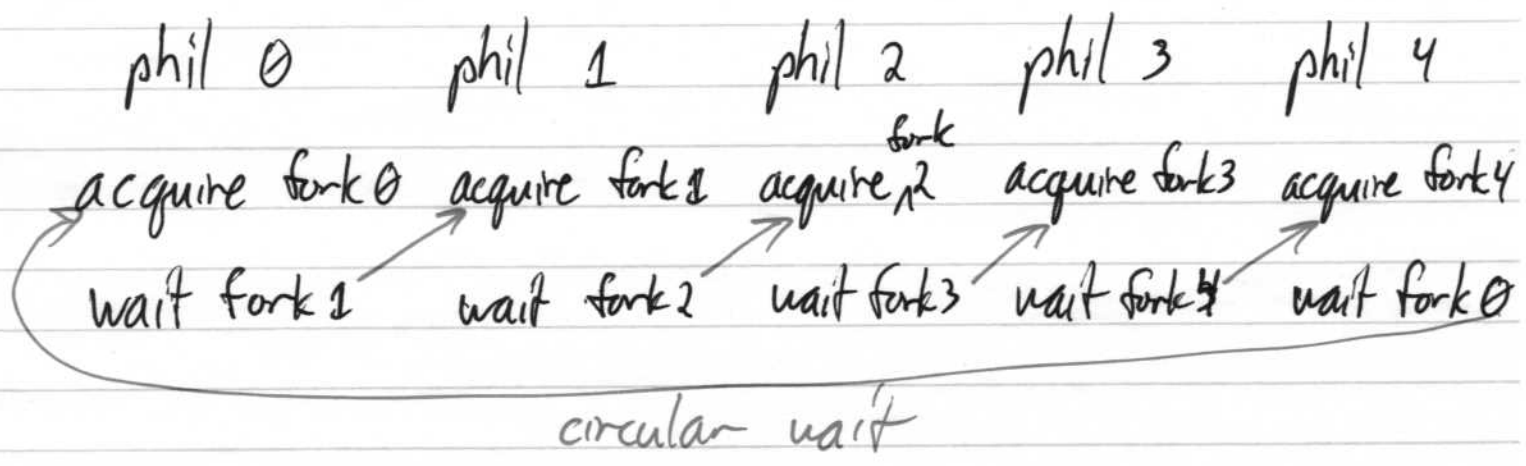 phil 0 phil 1 phil 2 phil 3 phil 4
acquire fork 0 acquire fork 1 acquire fork 2 acquire fork 3 acquire fork 4
wait fork 1 wait fork 2 wait fork 3 wait fork 4 wait fork 0
circular wait